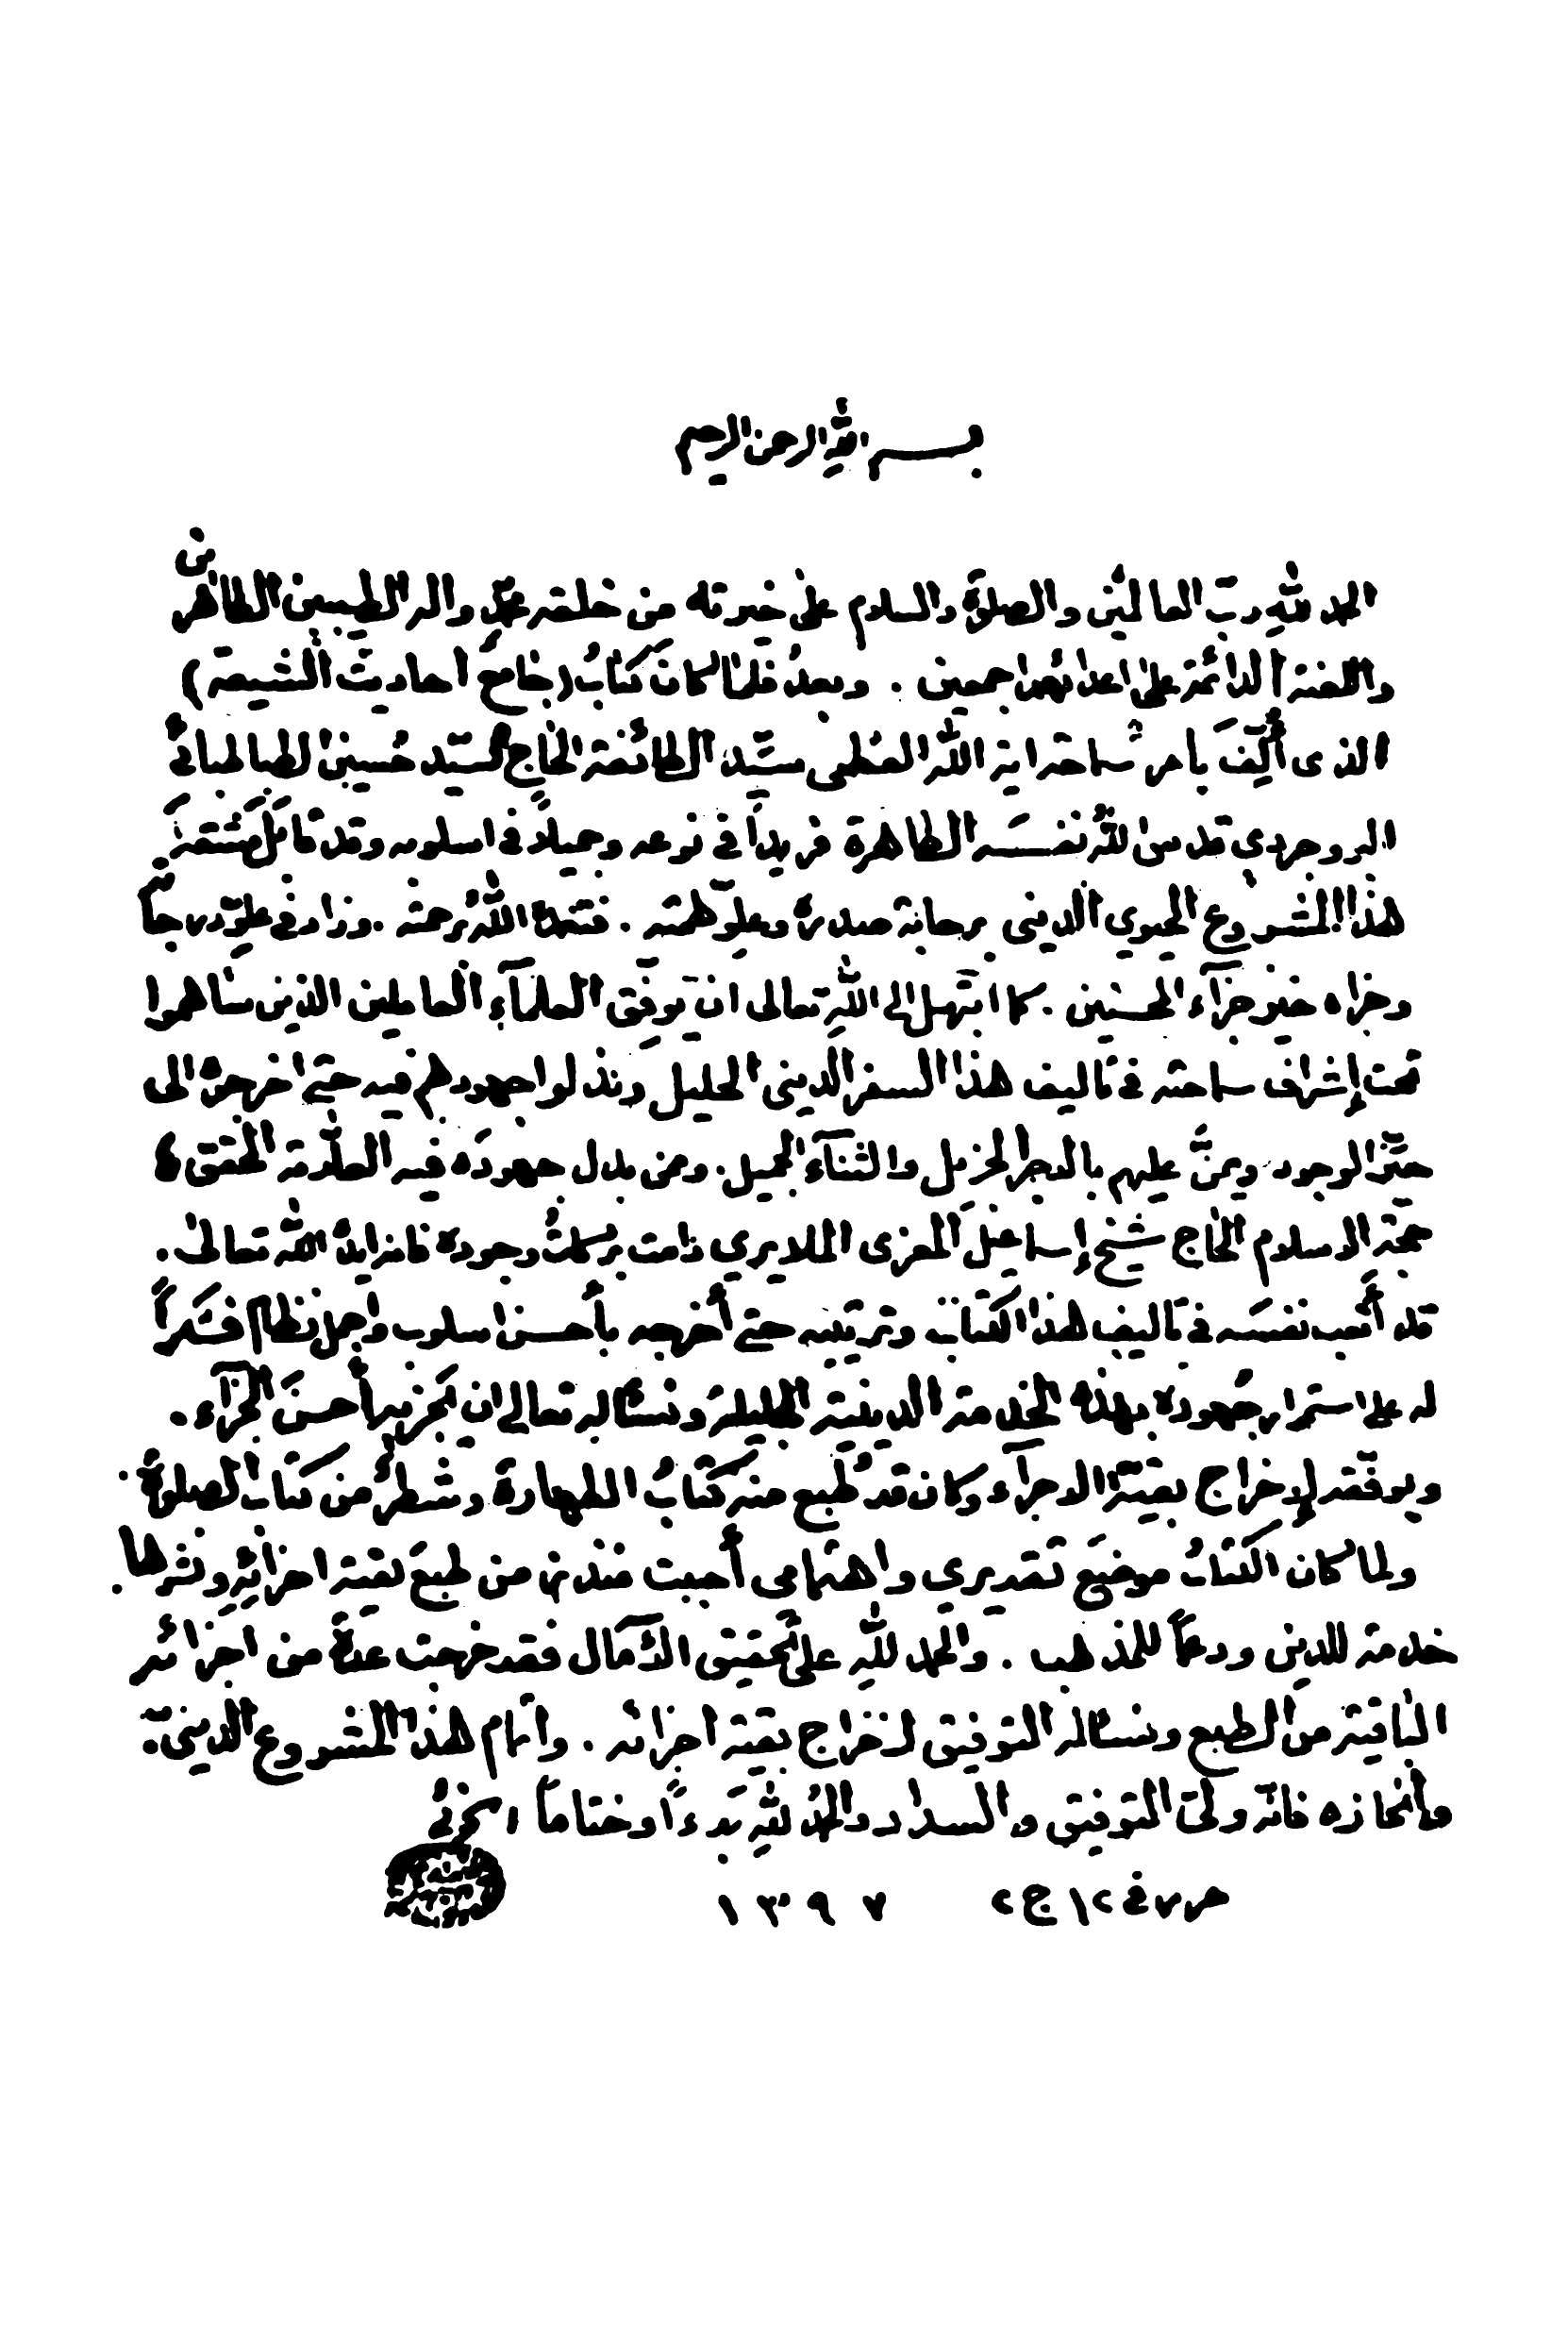 بسم الله الرحمن الرحيم
الحمد لله ربّ العالمين والصلوة والسلام على خيرته من خلقه محمّد واله الطيبين الطاهرين
واللعنة الدائمة على اعدائهم اجمعين . وبعدُ فلمّا كانَ كتابُ (جامعُ احاديث الشيعة)
الذى أُلِّفَ بامر سماحة اية الله العظمى سيّد الطائفة الحاج السيّد حُسين الطباطبائى
البروجردي قدس اللهُ نفسَه الطاهرة فريداً في نوعه وجميلاً في اسلوبه وقد تحمّل مشقّة
هذا المشروع الحيوي الديني برحابة صدره وعلوّ همّته . فتغمده اللهُ برحمته . وزاد في علوّ درجاته
وجزاه خير جزآء المحسنين . كما ابتهل إلى اللهِ تعالى ان يوفِّق العلمآءِ العاملين الذين ساهموا
تحت إشراف سماحته في تاليف هذا السفر الديني الجليل وبذلوا جهودهم فيه حتى اخرجوه الى
حيّز الوجود ويمنَّ عليهم بالاجر الجزيل والثنآء الجميل . وممن بذل جهودَه فيه العلّامة المحقق
حجّة الاسلام الحاج شيخ إسماعيل المعزى الملايري دامت بركاتُ وجوده فانه ايده الله تعالى .
قد أتعب نفسَه في تاليف هذا الكتاب وترتيبه حتى أخرجه بأحسن اسلوب وأجمل نظام فشكراً
له على استمرار جُهوده بهذه الخدمة الدينيّة الجليلة ونسئاله تعالى ان يجزيه أحسنَ الجزآء .
ويوفّقه لإخراج بقيّة الاجزآء وكان قد طُبِع منه كتابُ الطهارة وشطرٌ من كتاب الصلوة .
ولما كان الكتابُ موضِع تقديري واهتمامي أحببت منذ من طبع بقية اجزائِه ونشرها .
خدمة للدين ودعماً للمذهب . والحمد للهِ على تحقيق الآمال فقد خرجت عدة من اجزائه
الباقية من الطبع ونسئاله التوفيق لاخراج بقية اجزائه . واتمام هذا المشروع الديني
وانجازه فانّه ولىّ التوفيق والسداد والحمدُ للهِ بَدءاً وختاماً ، الخوئى
حرر في ٢١ ج ٢ ١٣٩٧